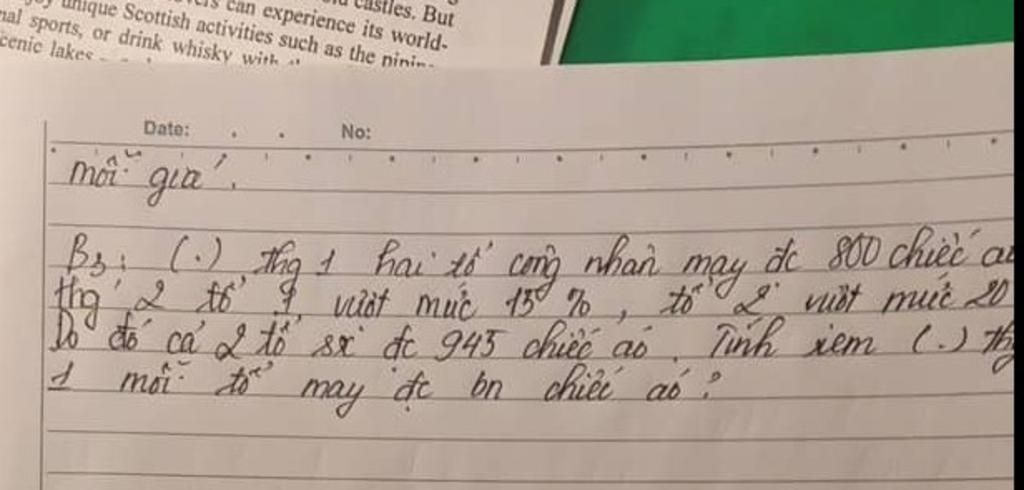 unique Scottish activities such as the
can experience its world-
castles. But
sports, or drink whisky with
lakes
Date: No:
mỗi giá.
B3: (.) thg 1 hai tổ công nhân may đc 800 chiếc
thg 2 tổ 1 vượt mức 15%, tổ 2 vượt mức 20
Do đó cả 2 tổ sx đc 945 chiếc áo. Tính xem (.)
1 mỗi tổ may đc bn chiếc áo?